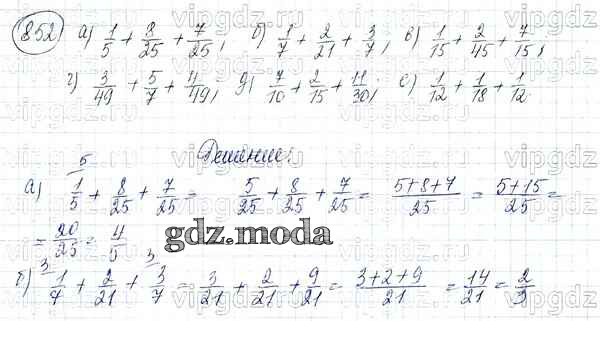 852) а) 1/5 + 8/25 + 7/25, б) 1/7 + 2/21 + 3/7, в) 1/15 + 2/45 + 7/15,
г) 3/49 + 5/7 + 4/49, д) 7/10 + 2/15 + 11/30, е) 1/12 + 1/18 + 1/12.
Решение:
5
а) 1/5 + 8/25 + 7/25 = 5/25 + 8/25 + 7/25 = 5+8+7/25 = 5+15/25 =
= 20/25 = 4/5
gdz.moda
3 3
б) 1/7 + 2/21 + 3/7 = 3/21 + 2/21 + 9/21 = 3+2+9/21 = 14/21 = 2/3